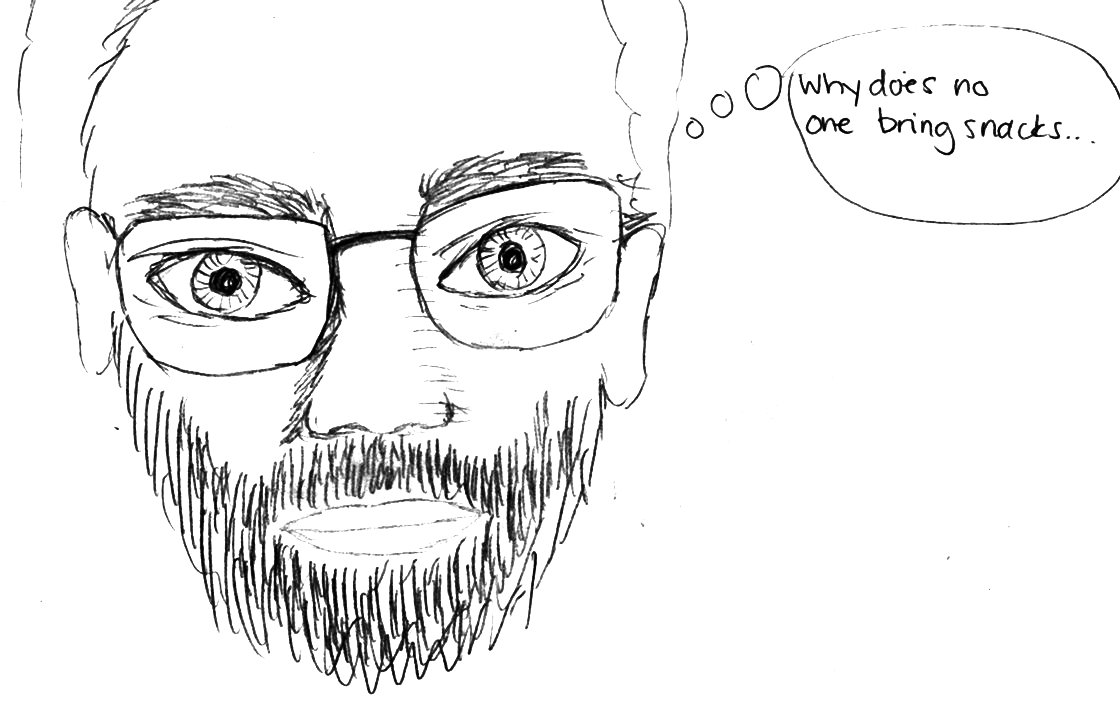 Why does no
one bring snacks...